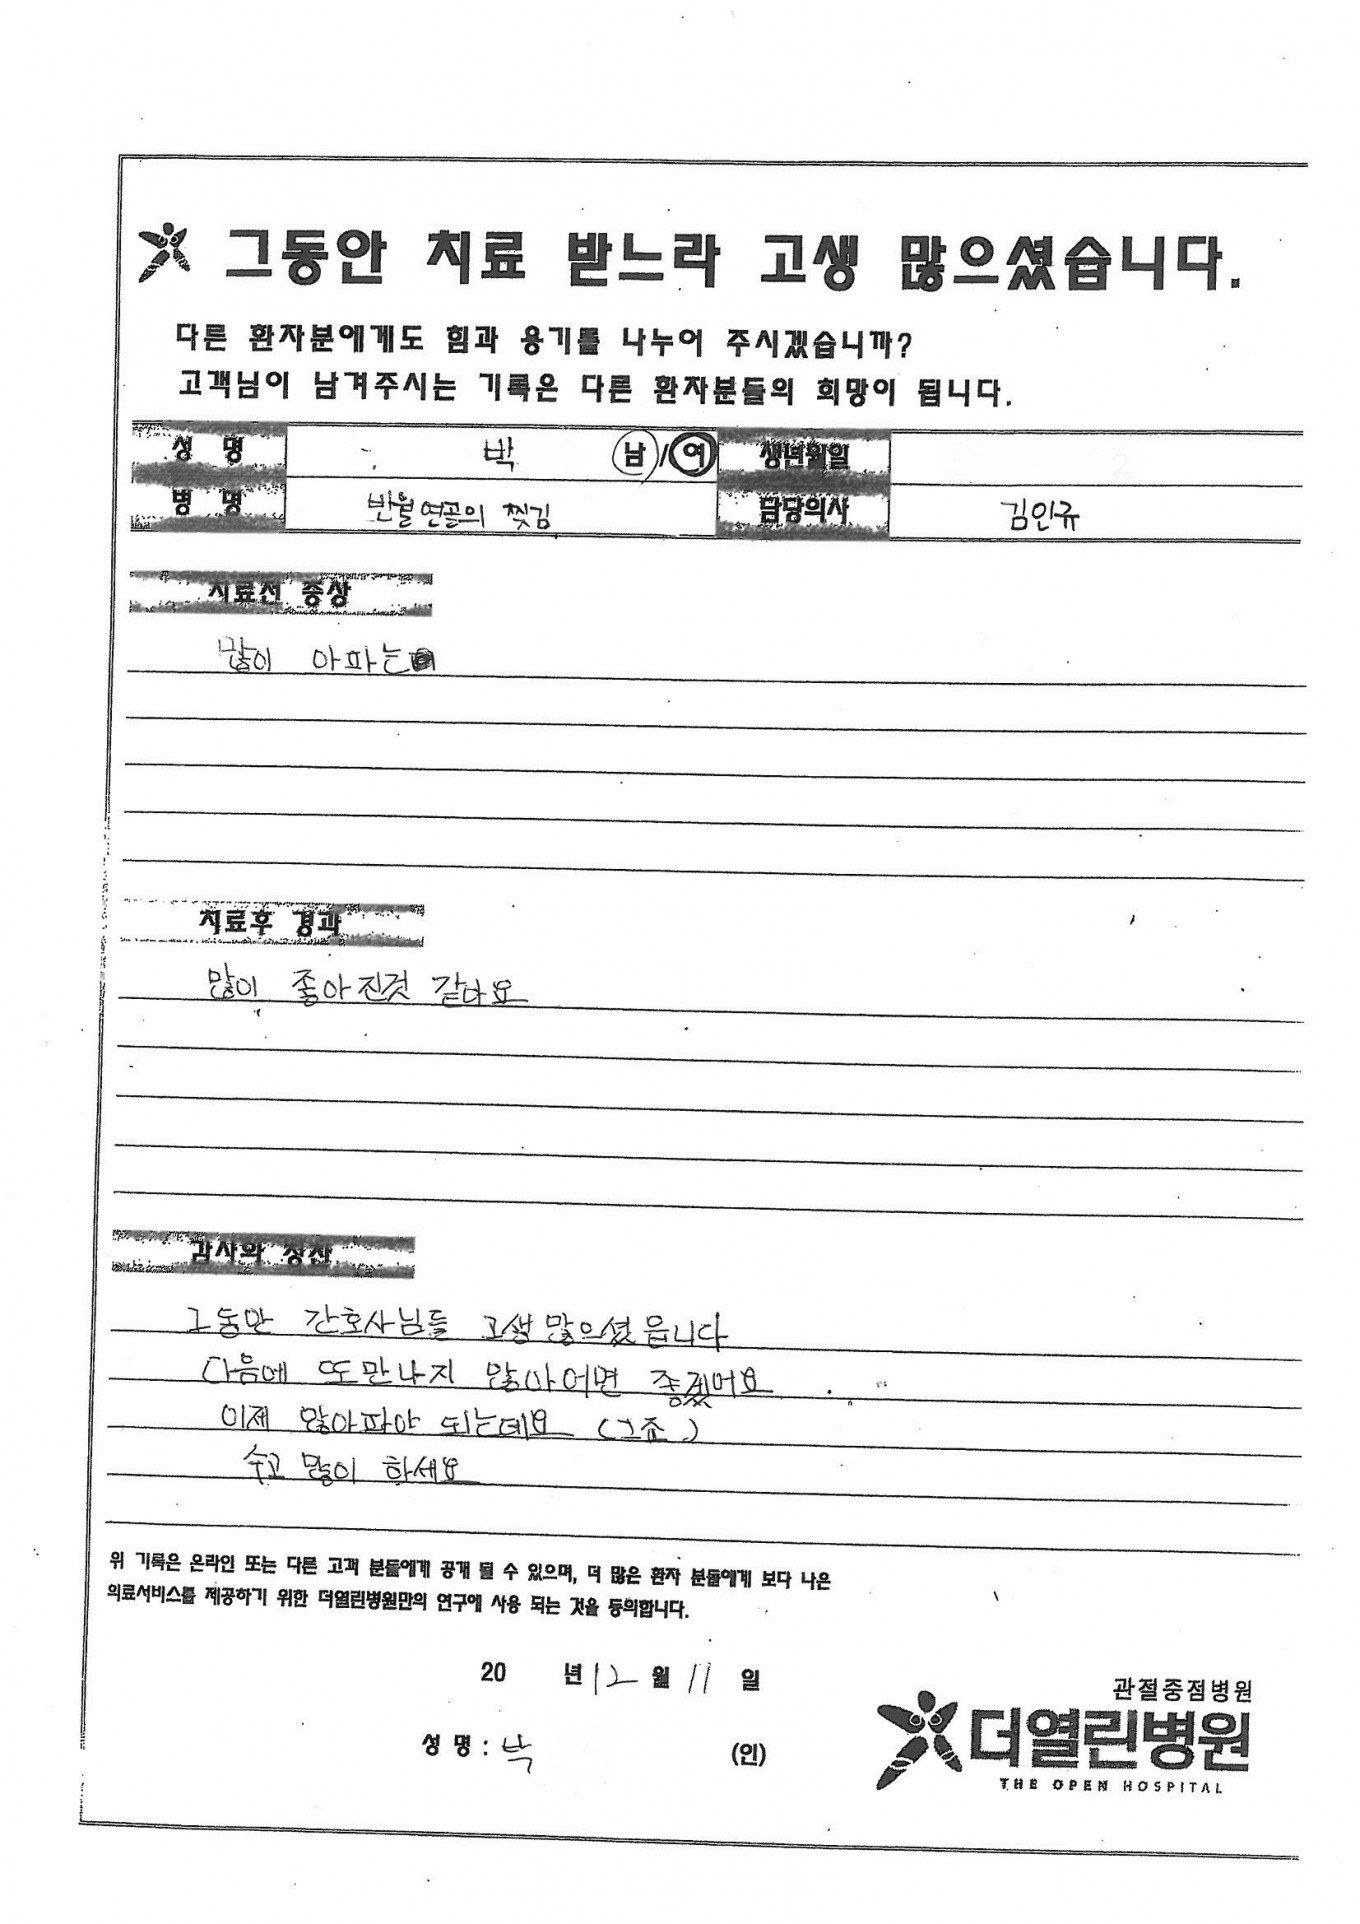 그동안 치료 받느라 고생 많으셨습니다.
다른 환자분에게도 힘과 용기를 나누어 주시겠습니까?
고객님이 남겨주시는 기록은 다른 환자분들의 희망이 됩니다.
성 명 박 남/여 생년월일
병 명 반월연골의 찢김 담당의사 김인규
치료전 증상
많이 아파는
치료후 경과
많이 좋아진것 같다요
감사와 칭찬
그동안 간호사님들 고생많으셨읍니다
다음에 또만나지 않아어면 좋겠어요
이제 않아파야 되는데요 (그죠.)
수고 많이 하세요
위 기록은 온라인 또는 다른 고객 분들에게 공개 될 수 있으며, 더 많은 환자 분들에게 보다 나은
의료서비스를 제공하기 위한 더열린병원만의 연구에 사용 되는 것을 동의합니다.
20 년 12 월 11 일
성 명 : 박 (인)
관절중점병원
더열린병원
THE OPEN HOSPITAL